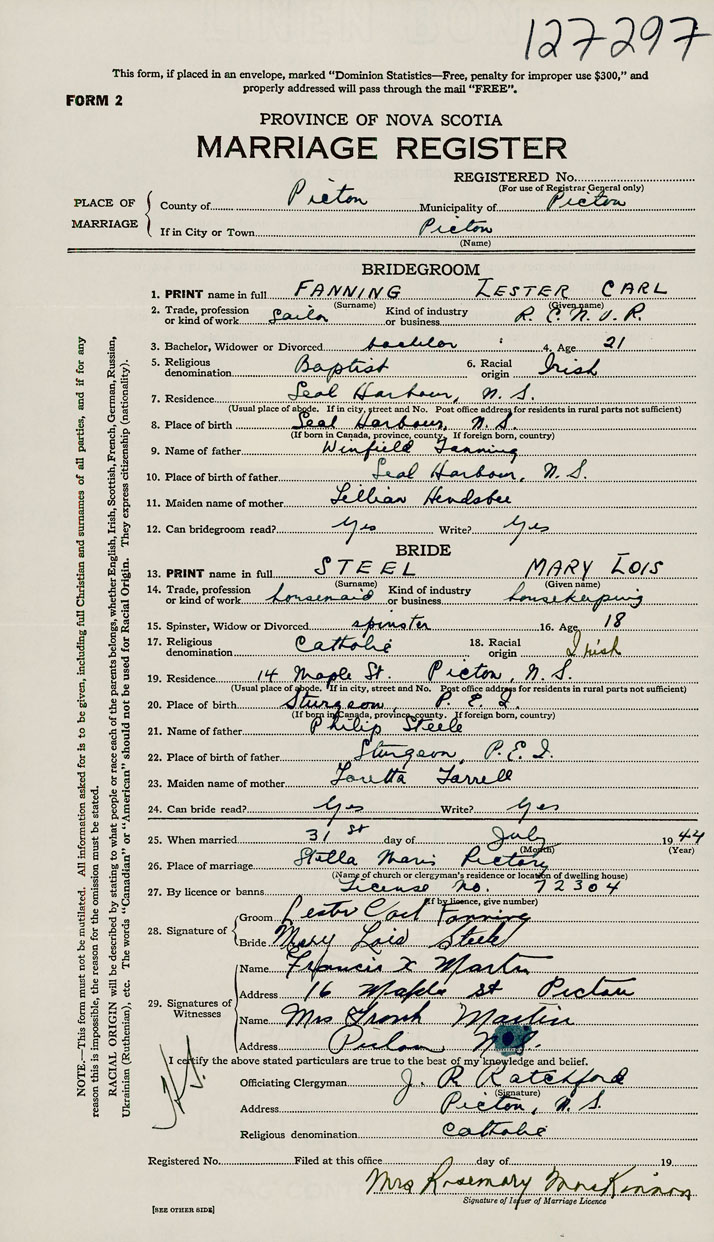 127297
This form, if placed in an envelope, marked "Dominion Statistics—Free, penalty for improper use $300," and
properly addressed will pass through the mail "FREE".
FORM 2
PROVINCE OF NOVA SCOTIA
MARRIAGE REGISTER
REGISTERED No.
(For use of Registrar General only)
PLACE OF MARRIAGE
County of Pictou Municipality of Pictou
If in City or Town Pictou
(Name)
BRIDEGROOM
1. PRINT name in full FANNING LESTER CARL
(Surname) (Given name)
2. Trade, profession or kind of work Sailor Kind of industry or business R. C. N. V. R.
3. Bachelor, Widower or Divorced bachelor 4. Age 21
5. Religious denomination Baptist 6. Racial origin Irish
7. Residence Seal Harbour, N. S.
(Usual place of abode. If in city, street and No. Post office address for residents in rural parts not sufficient)
8. Place of birth Seal Harbour, N. S.
(If born in Canada, province, county. If foreign born, country)
9. Name of father Winfield Fanning
10. Place of birth of father Seal Harbour, N. S.
11. Maiden name of mother Lillian Hendsbee
12. Can bridegroom read? Yes Write? Yes
BRIDE
13. PRINT name in full STEEL MARY LOIS
(Surname) (Given name)
14. Trade, profession or kind of work housemaid Kind of industry or business housekeeping
15. Spinster, Widow or Divorced spinster 16. Age 18
17. Religious denomination Catholic 18. Racial origin Irish
19. Residence 14 Maple St. Pictou, N. S.
(Usual place of abode. If in city, street and No. Post office address for residents in rural parts not sufficient)
20. Place of birth Sturgeon, P. E. I.
(If born in Canada, province, county. If foreign born, country)
21. Name of father Philip Steele
22. Place of birth of father Sturgeon, P.E.I.
23. Maiden name of mother Loretta Farrell
24. Can bride read? Yes Write? Yes
25. When married 31st day of July 1944
(Month) (Year)
26. Place of marriage Stella Maris Rectory
(Name of church or clergyman's residence or location of dwelling house)
27. By licence or banns License No. 72304
(If by licence, give number)
28. Signature of
Groom Lester Carl Fanning
Bride Mary Lois Steele
29. Signatures of Witnesses
Name Francis X Martin
Address 16 Maple St Pictou
Name Mrs Frank Martin
Address Pictou N.S.
I certify the above stated particulars are true to the best of my knowledge and belief.
Officiating Clergyman J. R. Ratchford
(Signature)
Address Pictou, N. S.
Religious denomination Catholic
Registered No. Filed at this office day of 19
Mrs Rosemary MacKinnon
Signature of Issuer of Marriage Licence
[SEE OTHER SIDE]
NOTE.—This form must not be mutilated. All information asked for is to be given, including full Christian and surnames of all parties, and if for any
reason this is impossible, the reason for the omission must be stated.
RACIAL ORIGIN will be described by stating to what people or race each of the parents belongs, whether English, Irish, Scottish, French, German, Russian,
Ukrainian (Ruthenian), etc. The words "Canadian" or "American" should not be used for Racial Origin. They express citizenship (nationality).